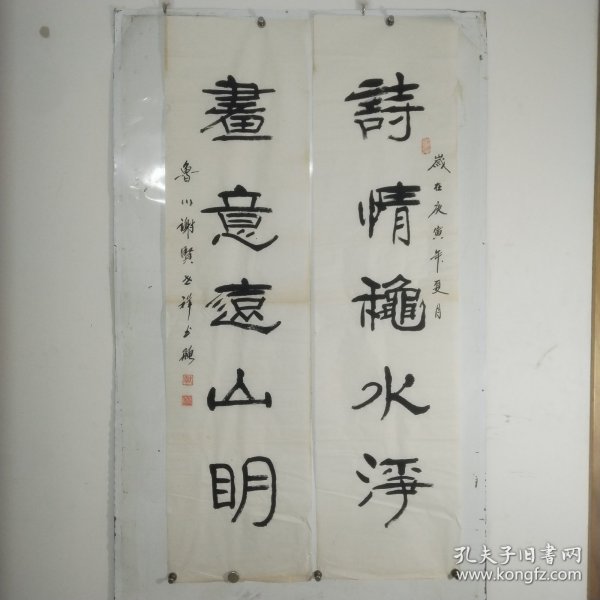 歲在庚寅年夏月
詩情穐水淨
畫意遠山明
魯川謝賢
孔夫子旧书网
www.kongfz.com